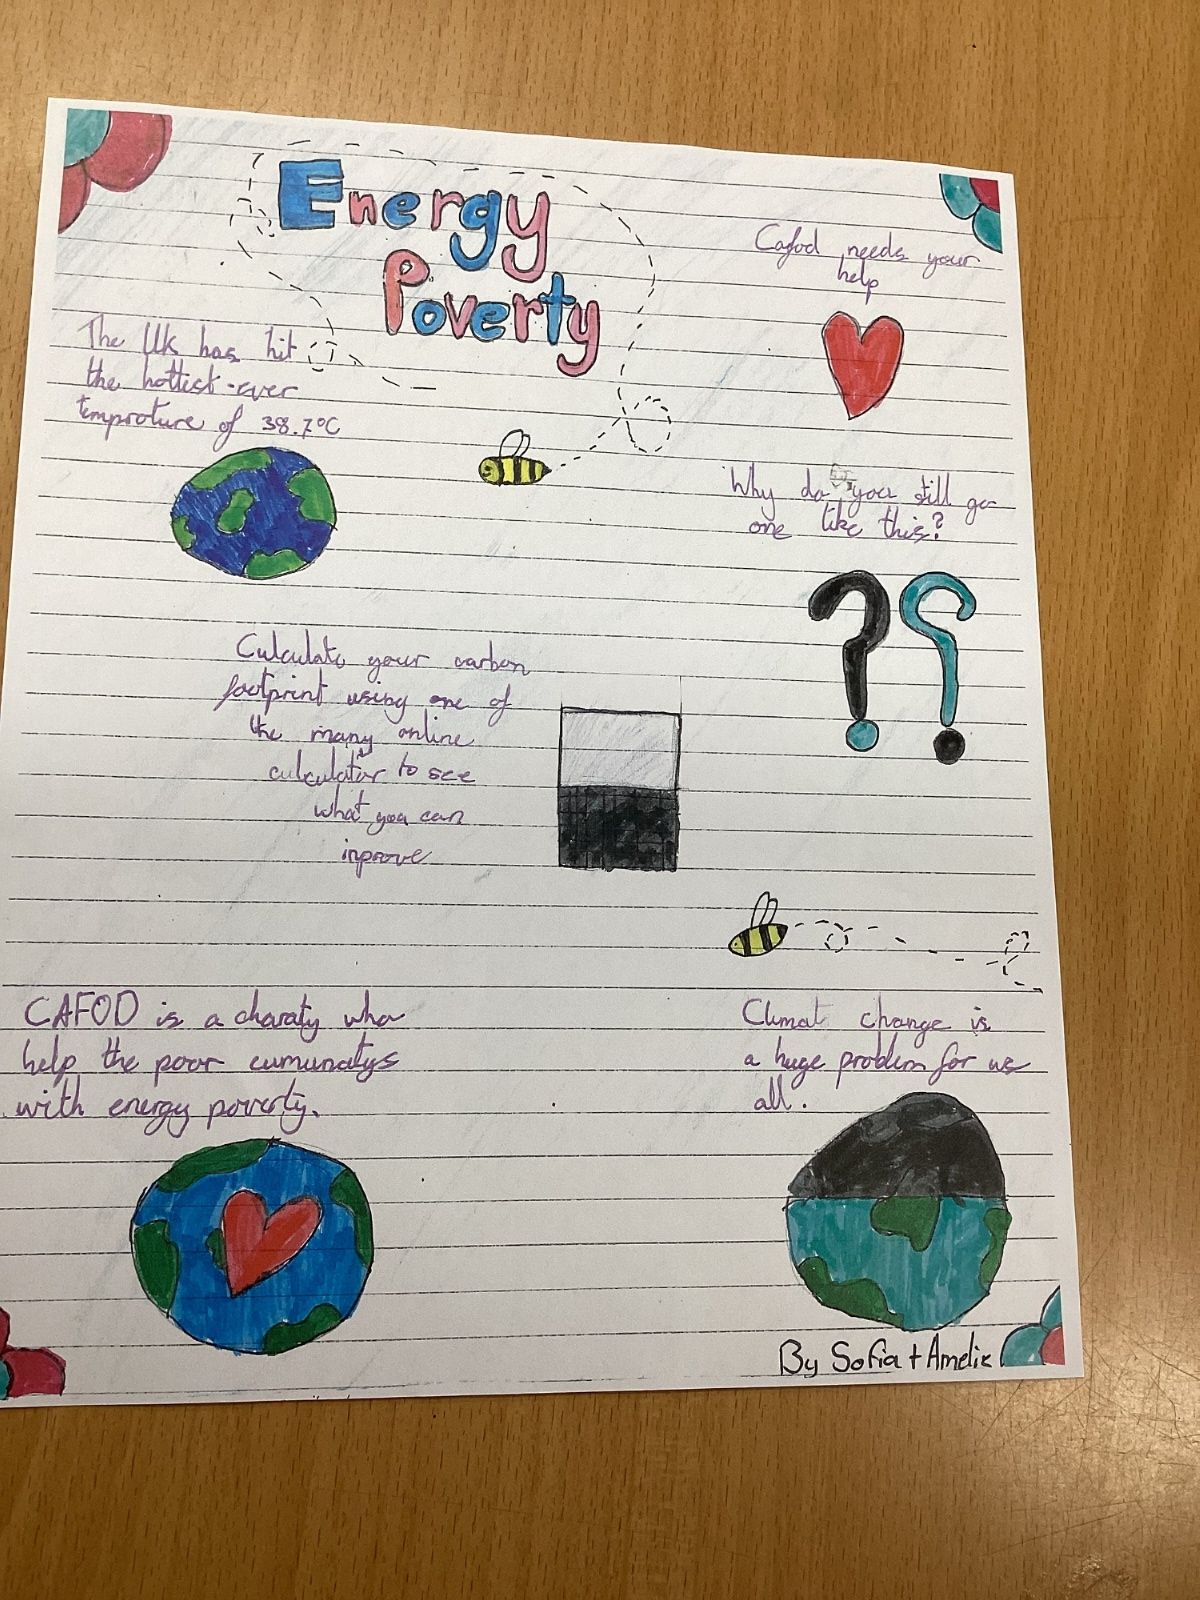 Energy
Poverty
Cafod needs your
help
The Uk has hit
the hottist-ever
temproture of 38.7°C
Why do you still go
one like this?
Calculate your carbon
footprint using one of
the many online
calculator to see
what you can
inprove
CAFOD is a charaty who
help the poor cumunatys
with energy poverty.
Climat change is
a huge problem for us
all.
By Sofia + Amelie